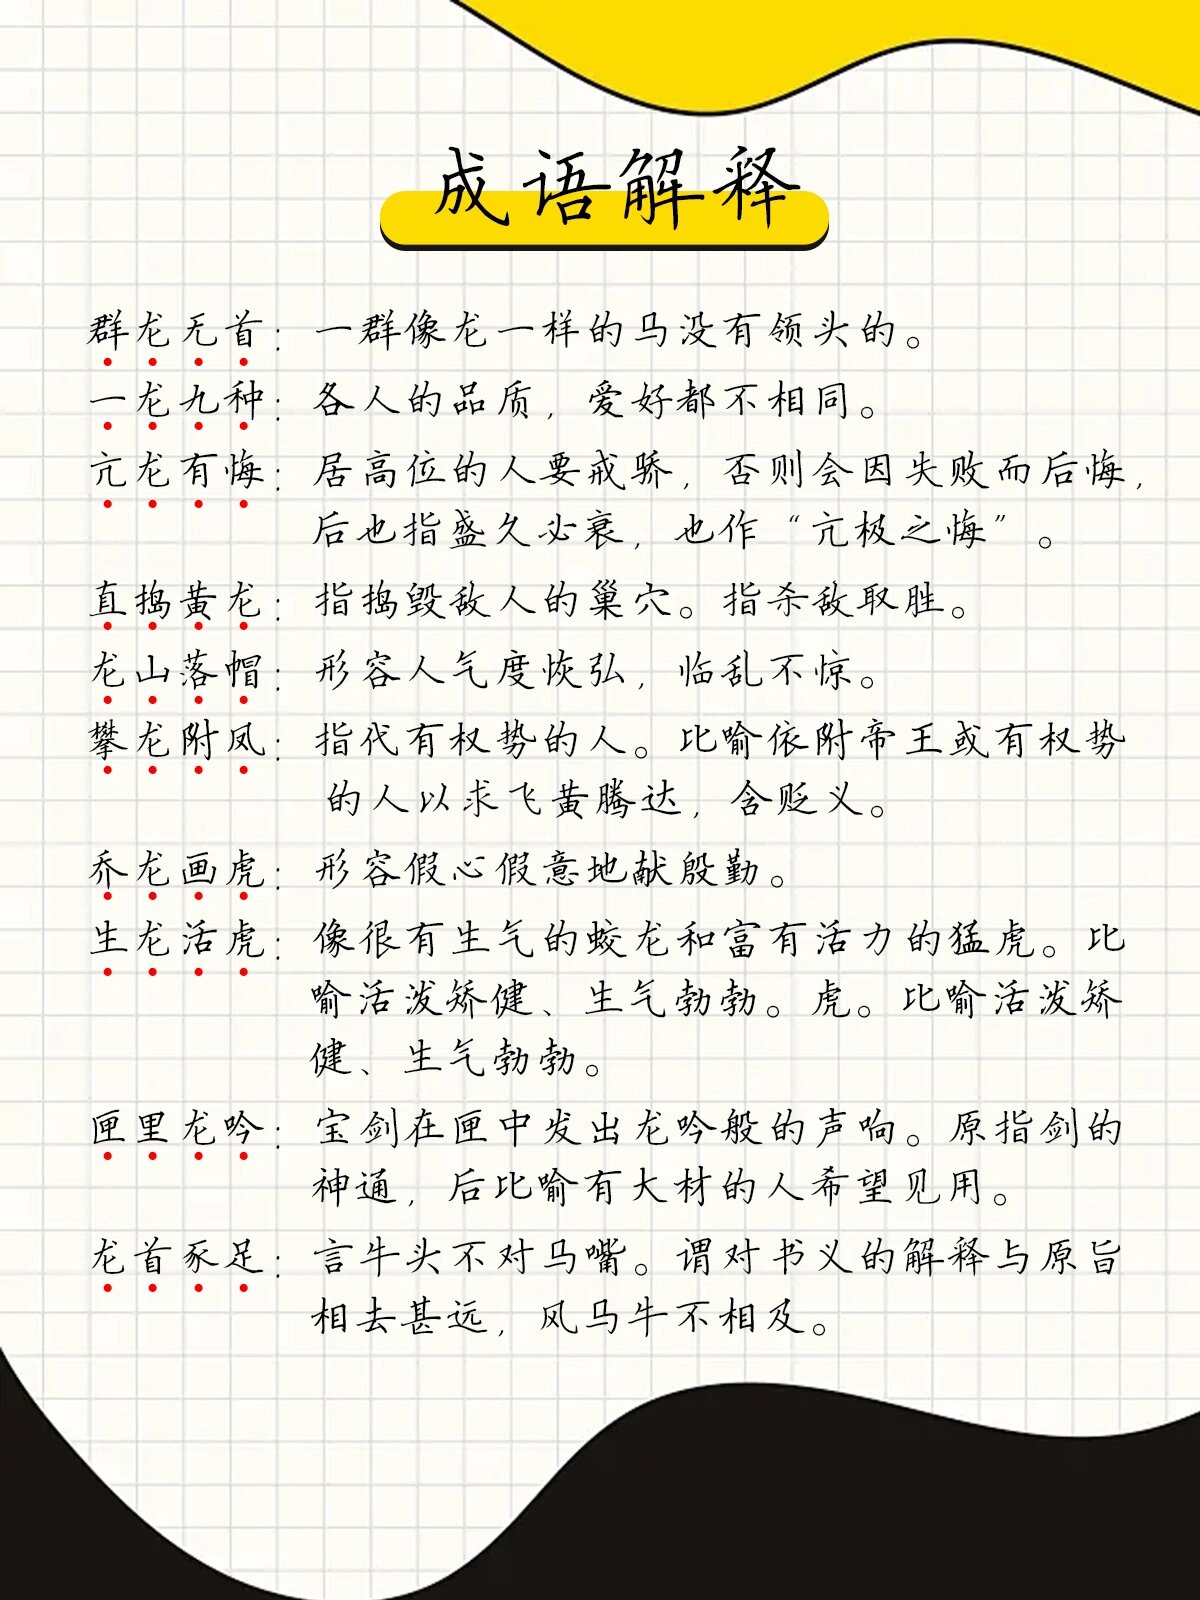 成语解释
群龙无首：一群像龙一样的马没有领头的。
一龙九种：各人的品质，爱好都不相同。
亢龙有悔：居高位的人要戒骄，否则会因失败而后悔，
后也指盛久必衰，也作“亢极之悔”。
直捣黄龙：指捣毁敌人的巢穴。指杀敌取胜。
龙山落帽：形容人气度恢弘，临乱不惊。
攀龙附凤：指代有权势的人。比喻依附帝王或有权势
的人以求飞黄腾达，含贬义。
乔龙画虎：形容假心假意地献殷勤。
生龙活虎：像很有生气的蛟龙和富有活力的猛虎。比
喻活泼矫健、生气勃勃。虎。比喻活泼矫
健、生气勃勃。
匣里龙吟：宝剑在匣中发出龙吟般的声响。原指剑的
神通，后比喻有大材的人希望见用。
龙首豕足：言牛头不对马嘴。谓对书义的解释与原旨
相去甚远，风马牛不相及。